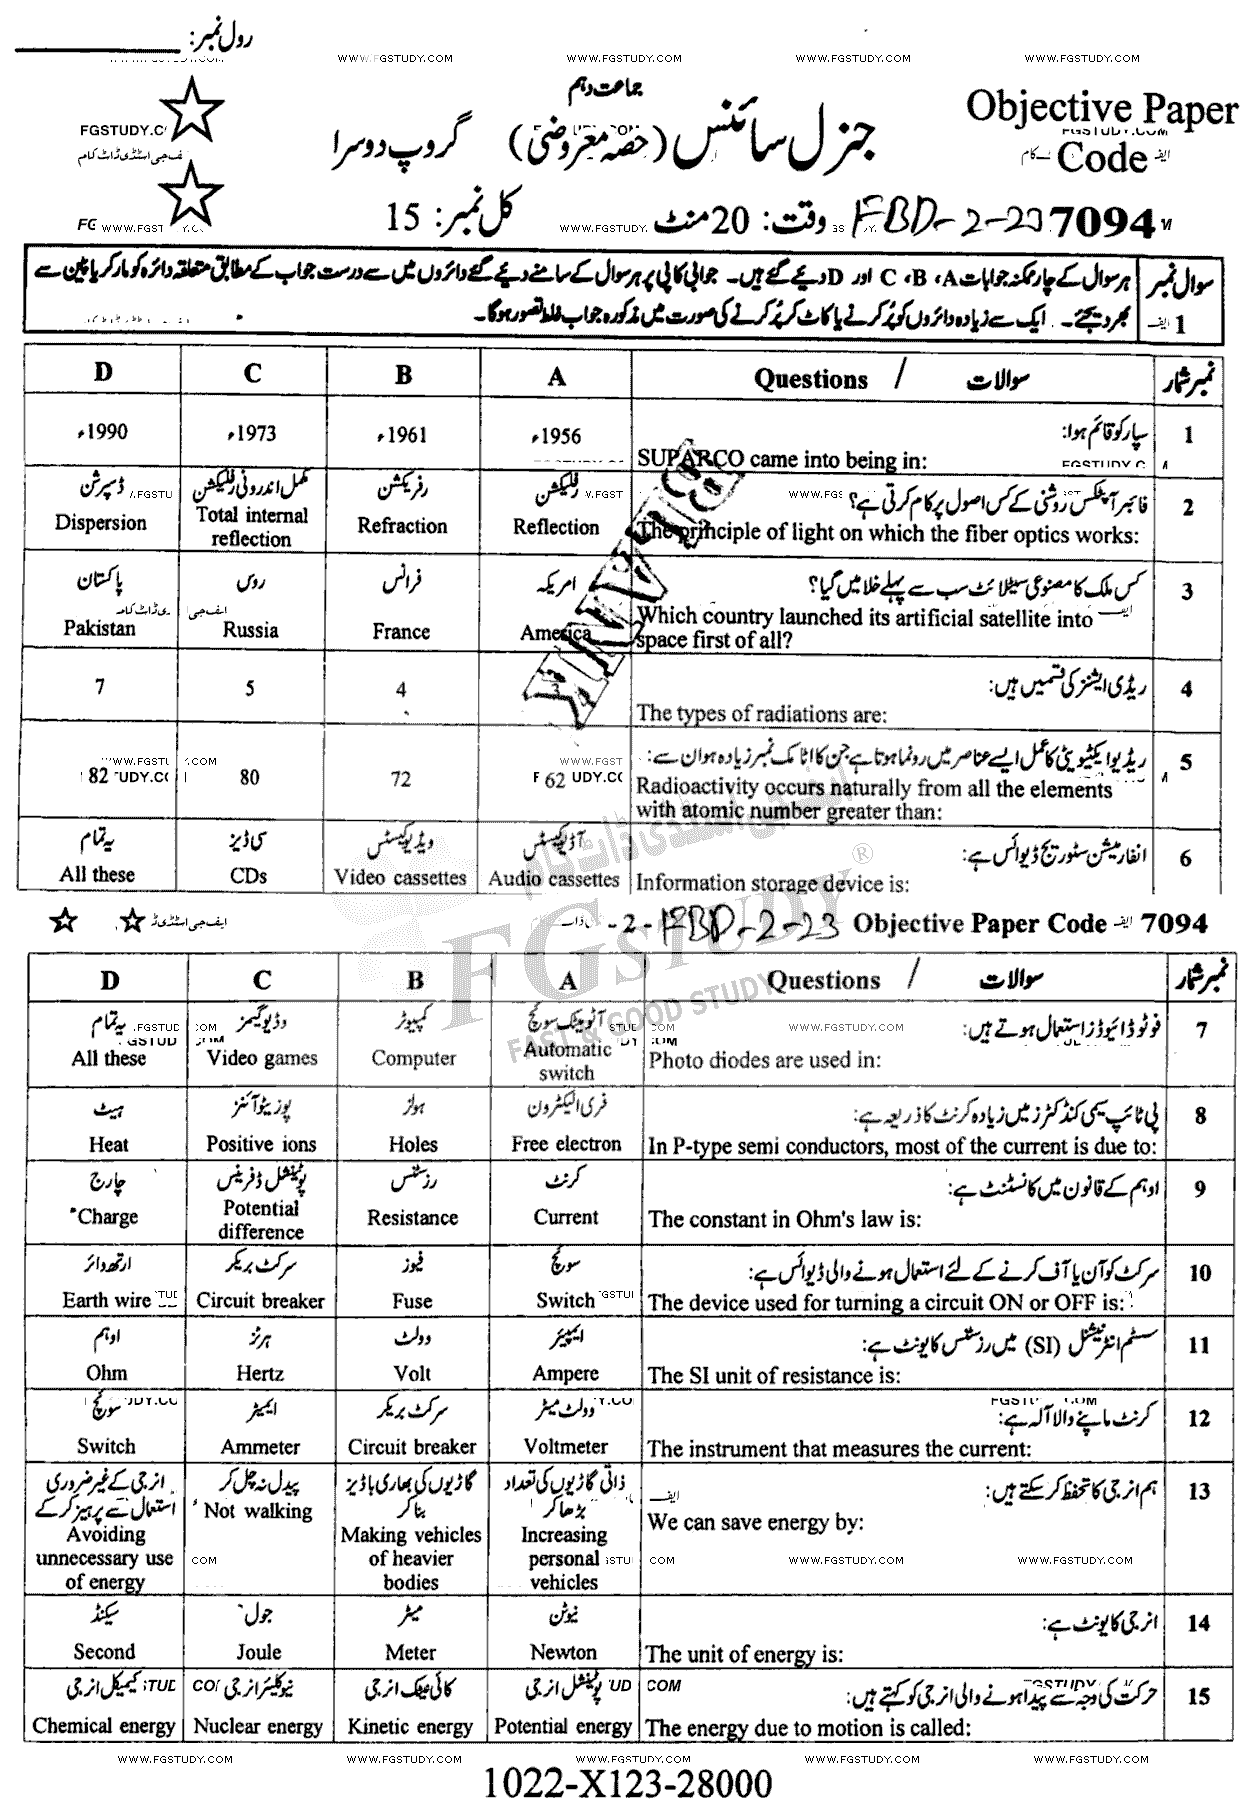 رول نمبر:
WWW.FGSTUDY.COM WWW.FGSTUDY.COM WWW.FGSTUDY.COM WWW.FGSTUDY.COM
جماعت دہم
Objective Paper
جنرل سائنس (حصہ معروضی) گروپ دوسرا
Code
وقت: 20 منٹ کل نمبر: 15
FBD-2-23 7094
سوال نمبر 1
ہر سوال کے چار ممکنہ جوابات A، B، C اور D دیئے گئے ہیں۔ جوابی کاپی پر ہر سوال کے سامنے دیئے گئے دائروں میں سے درست جواب کے مطابق متعلقہ دائرہ کو مارکر یا پین سے
بھر دیجئے۔ ایک سے زیادہ دائروں کو پُر کرنے یا کاٹ کر پُر کرنے کی صورت میں مذکورہ جواب غلط تصور ہوگا۔
نمبر شمار سوالات / Questions A B C D
1 سپارکو قائم ہوا:
SUPARCO came into being in:
1956ء 1961ء 1973ء 1990ء
2 فائبر آپٹکس روشنی کے کس اصول پر کام کرتی ہے؟
The principle of light on which the fiber optics works:
رفلیکشن رفریکشن مکمل اندرونی رفلیکشن ڈسپرشن
Reflection Refraction Total internal reflection Dispersion
3 کس ملک کا مصنوعی سیٹلائٹ سب سے پہلے خلا میں گیا؟
Which country launched its artificial satellite into
space first of all?
امریکہ فرانس روس پاکستان
America France Russia Pakistan
BLANK
4 ریڈی ایشنز کی قسمیں ہیں:
The types of radiations are:
3 4 5 7
5 ریڈیو ایکٹیویٹی کا عمل ایسے عناصر میں رونما ہوتا ہے جن کا اٹامک نمبر زیادہ ہو ان سے:
Radioactivity occurs naturally from all the elements
with atomic number greater than:
62 72 80 82
6 انفارمیشن سٹوریج ڈیوائس ہے:
Information storage device is:
آڈیو کیسٹس ویڈیو کیسٹس سی ڈیز یہ تمام
Audio cassettes Video cassettes CDs All these
-2- FBD-2-23 Objective Paper Code 7094
FGSTUDY
FAST & GOOD STUDY
نمبر شمار سوالات / Questions A B C D
7 فوٹو ڈائیوڈز استعمال ہوتے ہیں:
Photo diodes are used in:
آٹومیٹک سوئچ کمپیوٹر وڈیو گیمز یہ تمام
Automatic switch Computer Video games All these
8 پی ٹائپ سیمی کنڈکٹرز میں زیادہ کرنٹ کا ذریعہ ہے:
In P-type semi conductors, most of the current is due to:
فری الیکٹرون ہولز پوزیٹو آئنز ہیٹ
Free electron Holes Positive ions Heat
9 اوہم کے قانون میں کانسٹنٹ ہے:
The constant in Ohm's law is:
کرنٹ رزسٹنس پوٹینشل ڈفرینس چارج
Current Resistance Potential difference Charge
10 سرکٹ کو آن یا آف کرنے کے لئے استعمال ہونے والی ڈیوائس ہے:
The device used for turning a circuit ON or OFF is:
سوئچ فیوز سرکٹ بریکر ارتھ وائر
Switch Fuse Circuit breaker Earth wire
11 سسٹم انٹرنیشنل (SI) میں رزسٹنس کا یونٹ ہے:
The SI unit of resistance is:
ایمپیئر وولٹ ہرٹز اوہم
Ampere Volt Hertz Ohm
12 کرنٹ ماپنے والا آلہ ہے:
The instrument that measures the current:
وولٹ میٹر سرکٹ بریکر ایمیٹر سوئچ
Voltmeter Circuit breaker Ammeter Switch
13 ہم انرجی کا تحفظ کر سکتے ہیں:
We can save energy by:
ذاتی گاڑیوں کی تعداد بڑھا کر گاڑیوں کی بھاری باڈیز بنا کر پیدل نہ چل کر انرجی کے غیر ضروری استعمال سے پرہیز کر کے
Increasing personal vehicles Making vehicles of heavier bodies Not walking Avoiding unnecessary use of energy
14 انرجی کا یونٹ ہے:
The unit of energy is:
نیوٹن میٹر جول سیکنڈ
Newton Meter Joule Second
15 حرکت کی وجہ سے پیدا ہونے والی انرجی کو کہتے ہیں:
The energy due to motion is called:
پوٹینشل انرجی کائی نیٹک انرجی نیوکلیئر انرجی کیمیکل انرجی
Potential energy Kinetic energy Nuclear energy Chemical energy
WWW.FGSTUDY.COM WWW.FGSTUDY.COM WWW.FGSTUDY.COM WWW.FGSTUDY.COM WWW.FGSTUDY.COM
1022-X123-28000